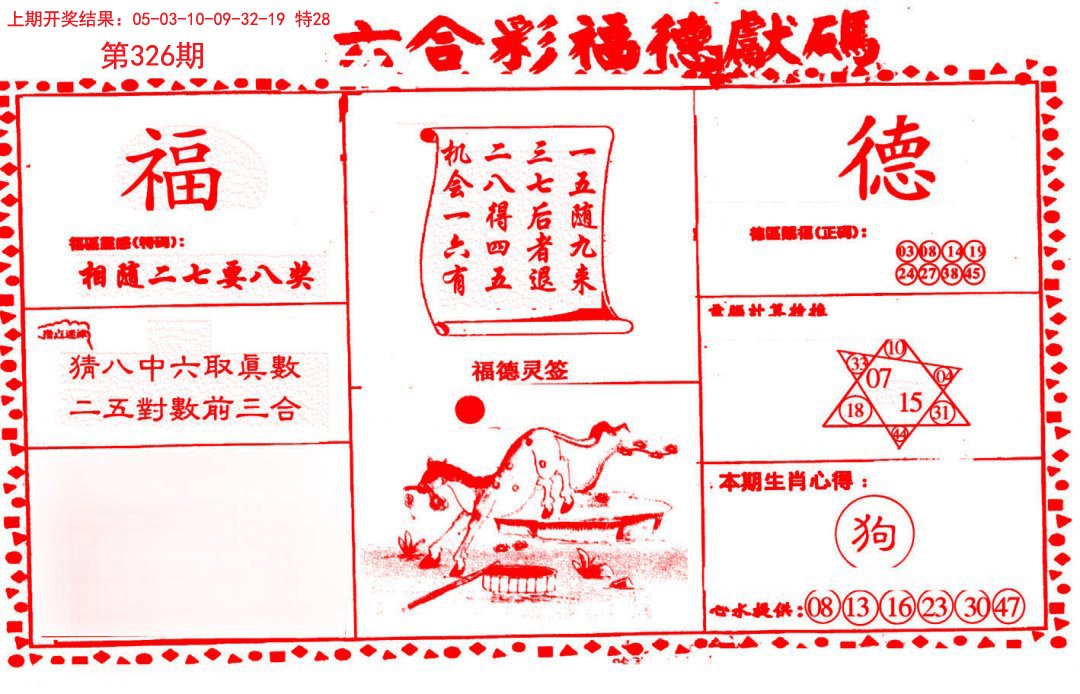 上期开奖结果：05-03-10-09-32-19 特28
第326期
六合彩福德獻碼
福
福區靈感(特码)：
相随二七要八奖
指点迷津
猜八中六取真數
二五對數前三合
一五随九来
三七后者退
二八得四五
机会一六有
福德灵签
德
德區賜福(正码)：
03 08 14 19
24 27 38 45
電腦計算粉推
10
33 07 04
18 15 31
44
本期生肖心得：
狗
心水提供：08 13 16 23 30 47